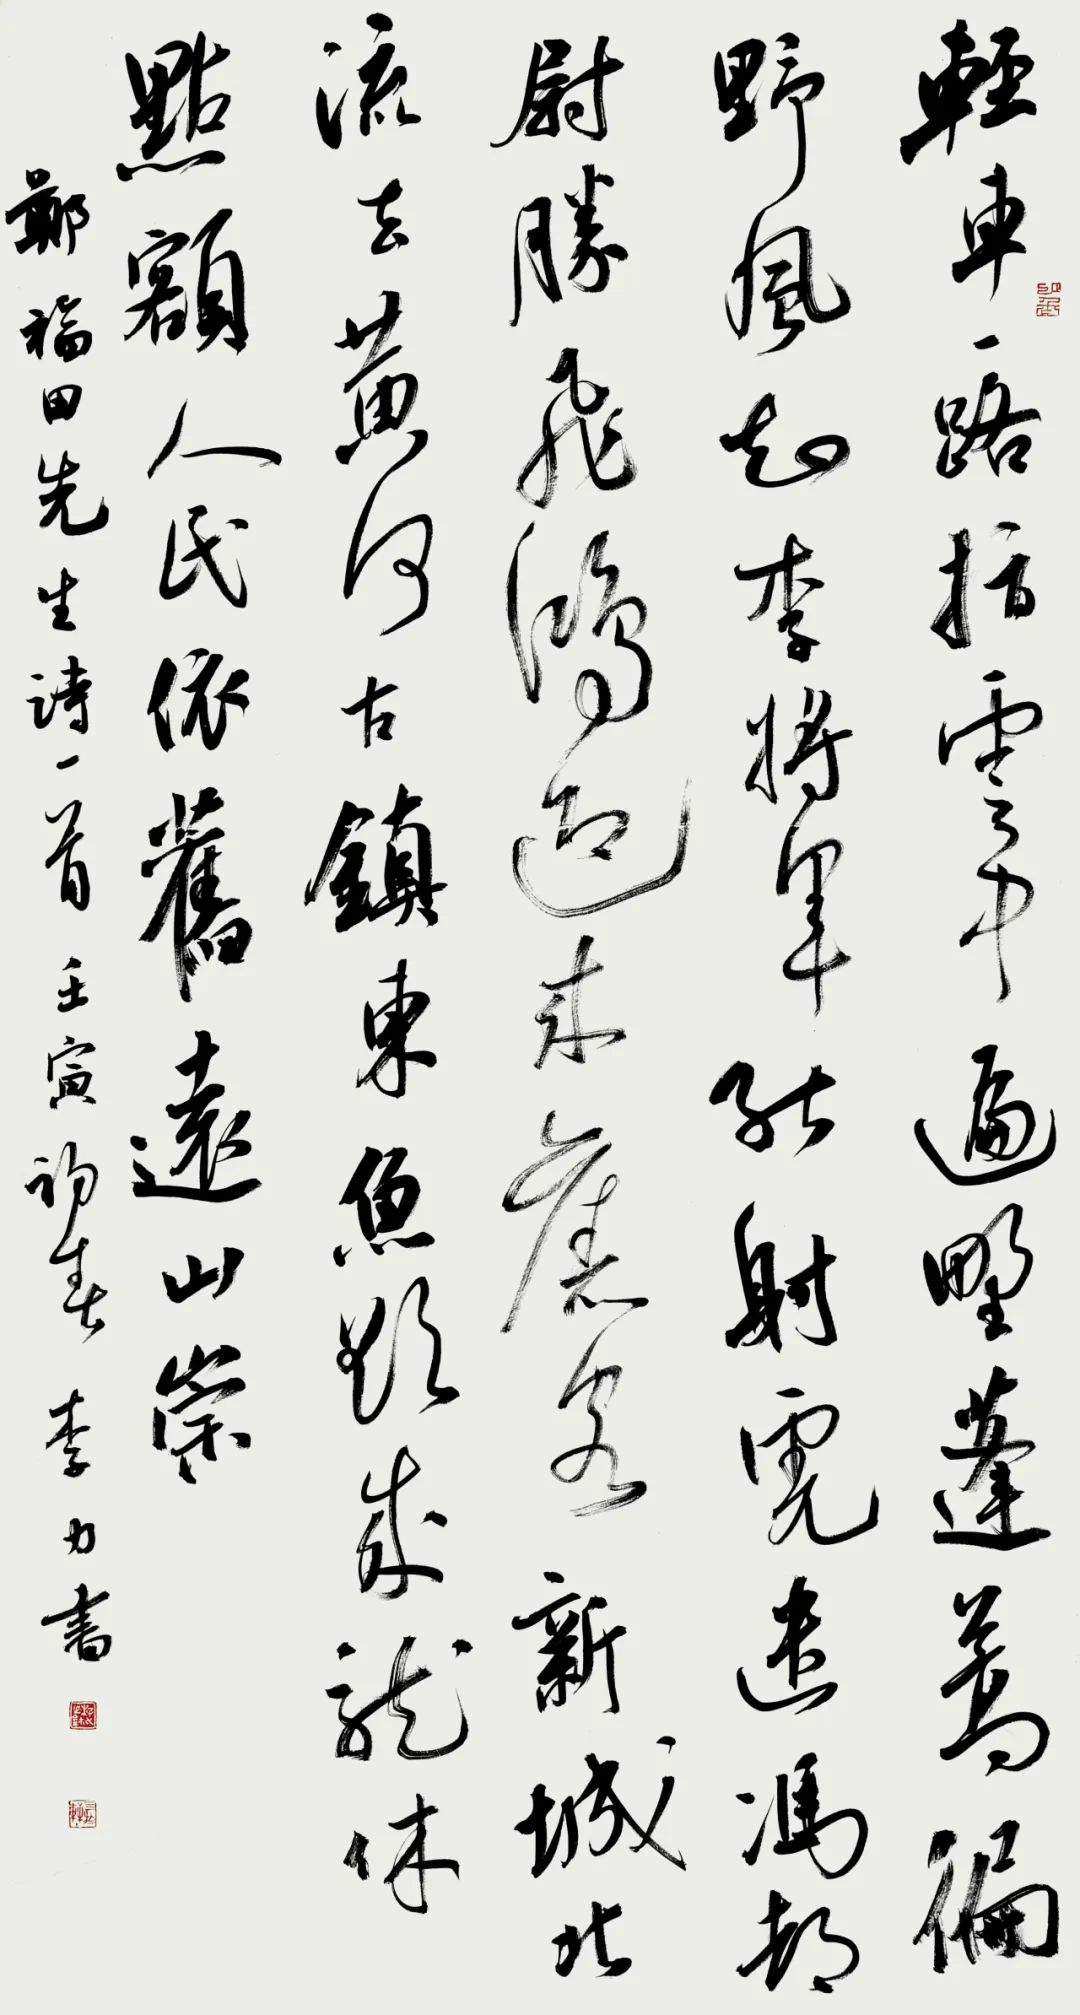 輕車一路指雲中遍野蓬蒿徧
野風知李將軍能射虎遣馮都
尉勝飛鴻迎來客新城北
流去黃河古鎮東魚成龍休
點額人民依舊遠山崇
鄭福田先生詩一首壬寅初春李力書